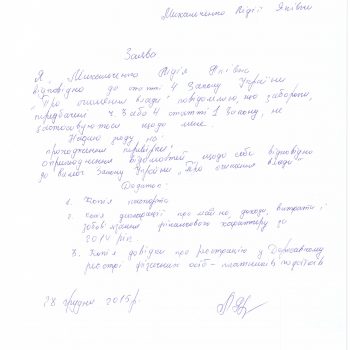 Михальченко Лідії Яківни
Заява
Я, Михальченко Лідія Яківна
відповідно до статті 4 Закону України
„Про очищення влади" повідомляю, що заборони,
передбачені ч. 3 або 4 статті 1 Закону, не
застосовуються щодо мене.
Надаю згоду на:
проходження перевірки;
оприлюднення відомостей щодо себе відповідно
до вимог Закону України „Про очищення влади"
Додаток:
1. Копія паспорта
2. Копія декларації про майно, доходи, витрати і
зобов'язання фінансового характеру за
2014 рік.
3. Копія довідки про реєстрацію у Державному
реєстрі фізичних осіб - платників податків
28 грудня 2015 р.